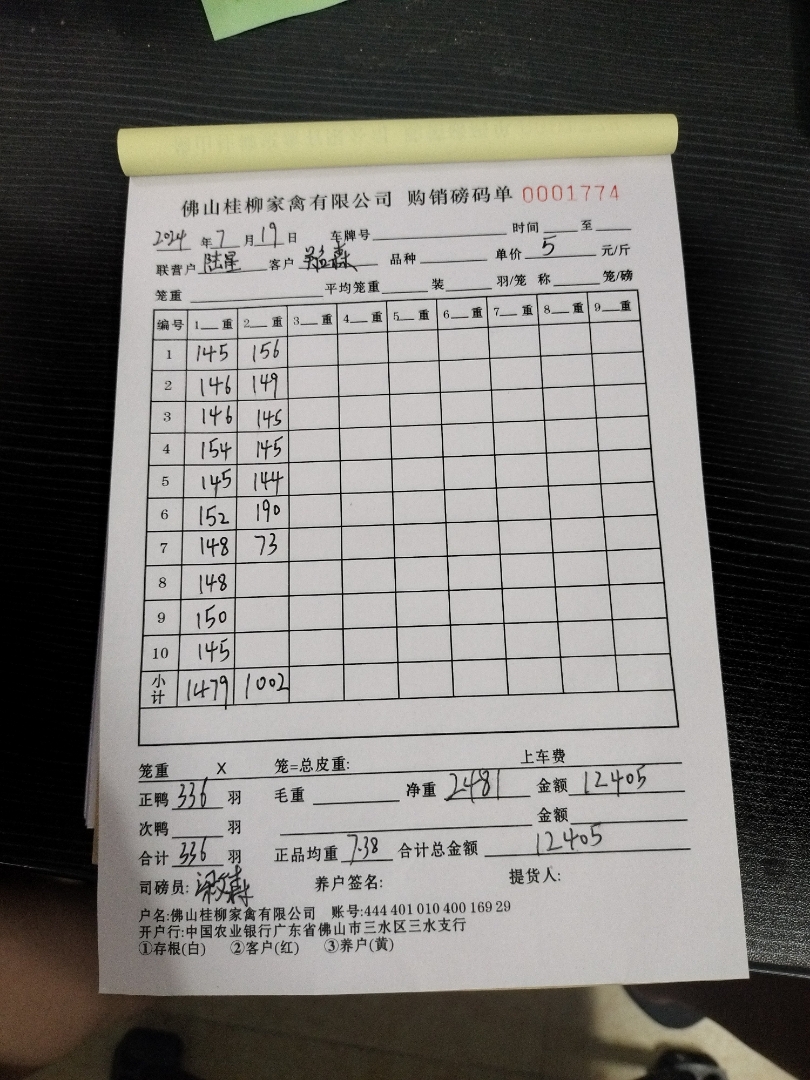 佛山桂柳家禽有限公司 购销磅码单 0001774
2024 年 7 月 19 日 车牌号 时间 至
联营户 陆星 客户 品种 单价 5 元/斤
笼重 平均笼重 装 羽/笼 称 笼/磅
编号 1 重 2 重 3 重 4 重 5 重 6 重 7 重 8 重 9 重
1 145 156
2 146 149
3 146 145
4 154 145
5 145 144
6 152 190
7 148 73
8 148
9 150
10 145
小计 1479 1002
笼重 X 笼=总皮重: 上车费
正鸭 336 羽 毛重 净重 2481 金额 12405
次鸭 羽 金额
合计 336 羽 正品均重 7.38 合计总金额 12405
司磅员: 养户签名: 提货人:
户名:佛山桂柳家禽有限公司 账号:444 401 010 400 169 29
开户行:中国农业银行广东省佛山市三水区三水支行
①存根(白) ②客户(红) ③养户(黄)